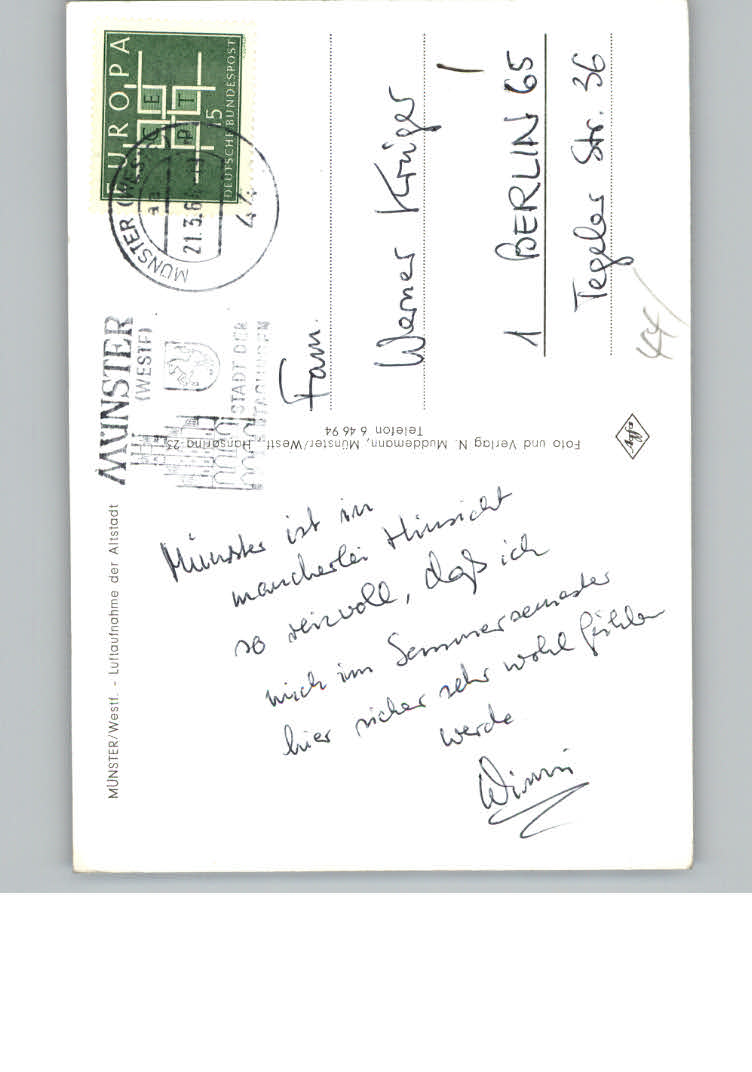 MÜNSTER/Westf. - Luftaufnahme der Altstadt
Münster ist in
mancherlei Hinsicht
so reizvoll, daß ich
mich im Sommersemester
hier sicher sehr wohl fühlen
werde
Winni
Foto und Verlag N. Muddemann, Münster/Westf., Hansaring 23,
Telefon 6 46 94
Agfa
MÜNSTER
(WESTF)
STADT DER
MÜNSTER (WESTF)
21.3.6
44
EUROPA
CEPT
15
DEUTSCHE BUNDESPOST
Fam.
Werner Krüger
1 BERLIN 65
Tegeler Str. 36
44/